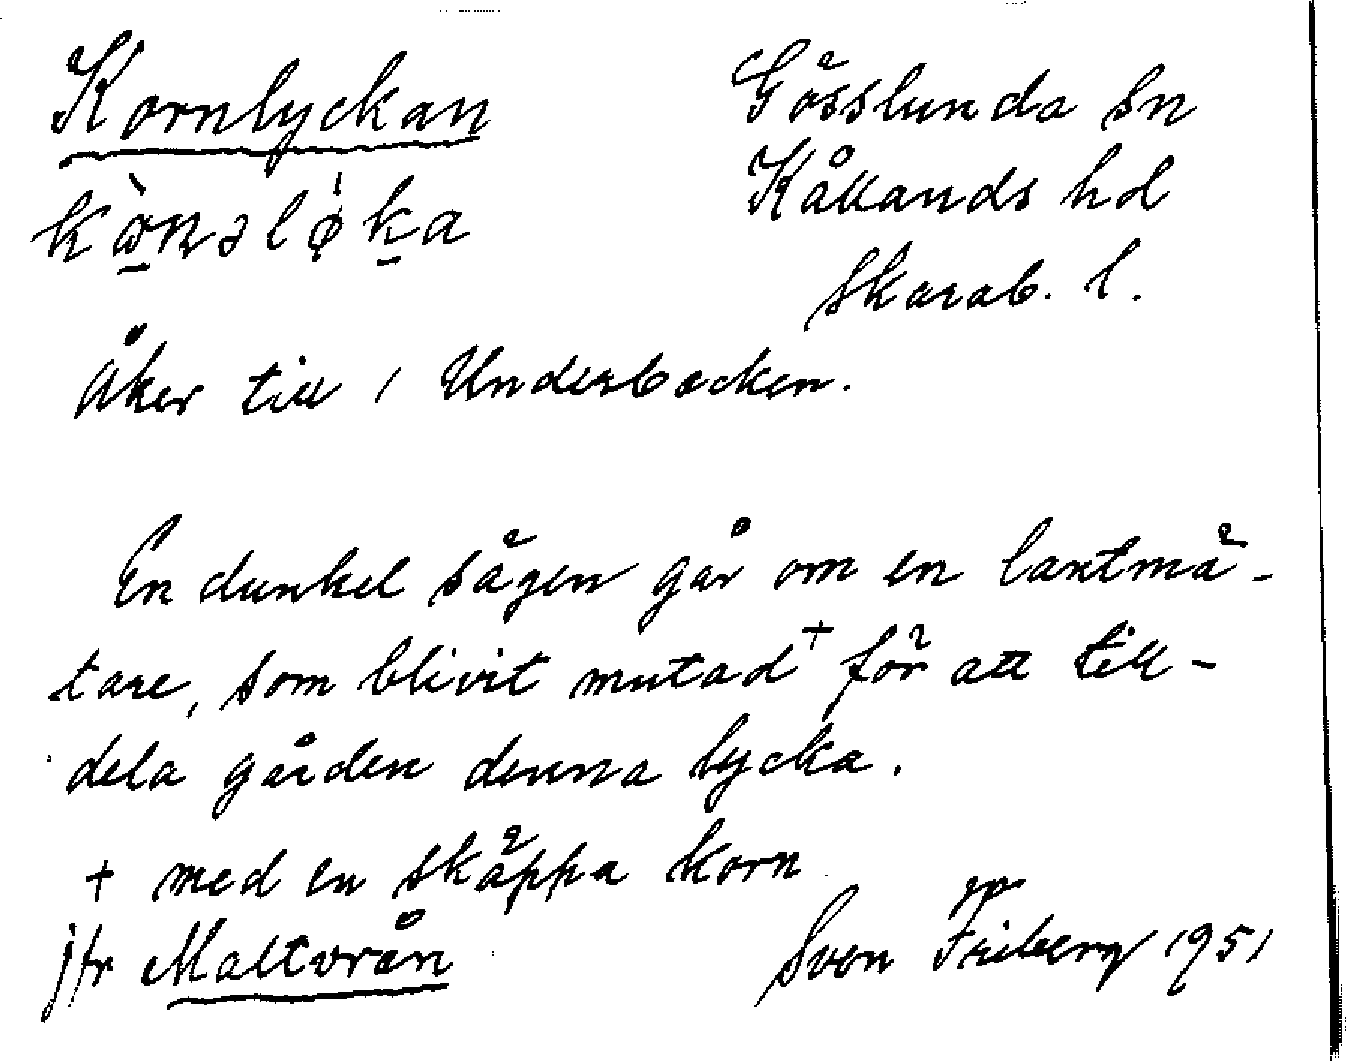 Kornlyckan
Gösslunda sn
Kållands hd
Skarab. l.
Åker till 1 Underbacken.
En dunkel sägen går om en lantmä-
tare, som blivit mutad + för att till-
dela gården denna lycka.
+ med en skäppa korn
jfr Maltvrån
Sven Friberg 1951